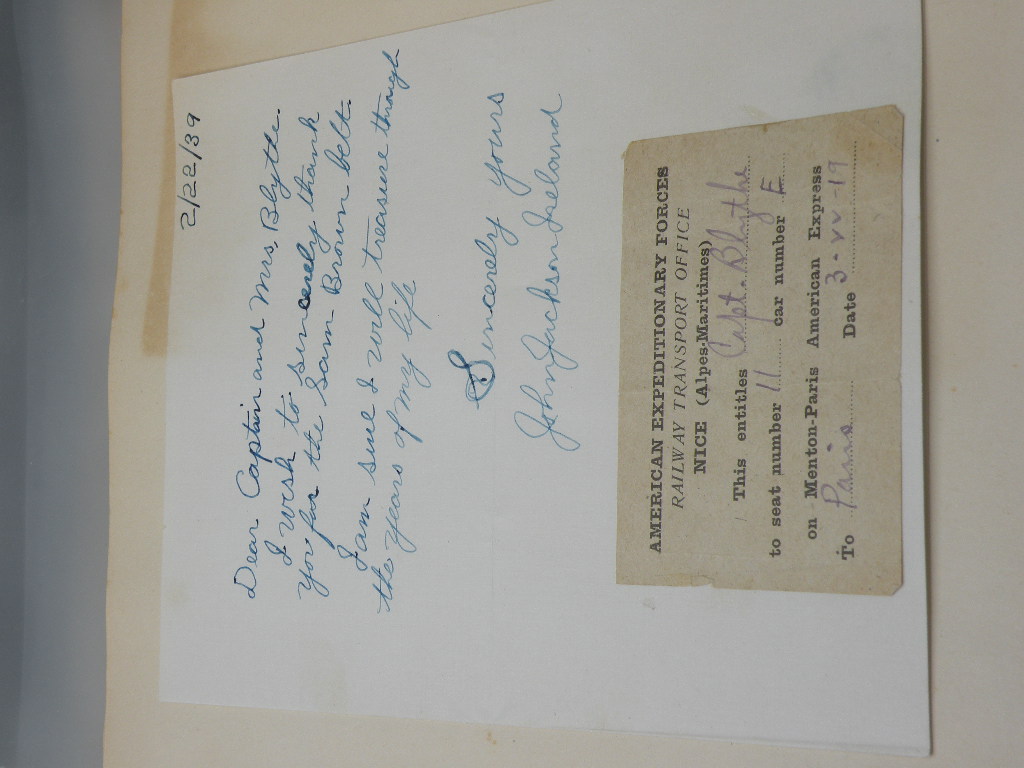 2/22/39
Dear Captain and Mrs. Blythe.
I wish to sincerely thank
you for the Sam Brown belt.
I am sure I will treasure through
the years of my life
Sincerely yours
John Jackson Ireland
AMERICAN EXPEDITIONARY FORCES
RAILWAY TRANSPORT OFFICE
NICE (Alpes-Maritimes)
This entitles Capt. Blythe
to seat number 11 car number E
on Menton-Paris American Express
To Paris Date 3-VV-19